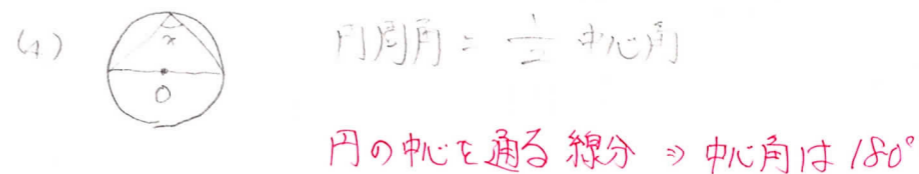 (4)
円周角 = 1/2 中心角
x
O
円の中心を通る線分 ⇒ 中心角は180°